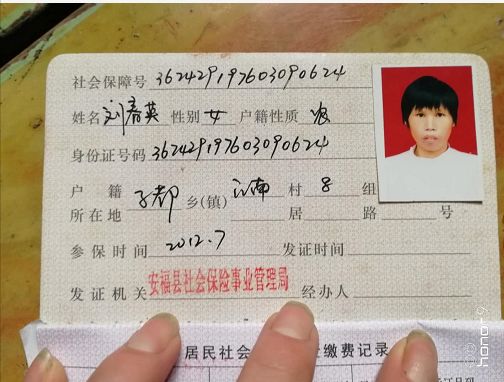 社会保障号 362429197603090624
姓名 刘春英 性别 女 户籍性质 农
身份证号码 362429197603090624
户籍所在地 乡(镇) 江南 村 8 组
居 路 号
参保时间 2012.7 发证时间
发证机关 安福县社会保险事业管理局 经办人
居民社会 缴费记录
honor9